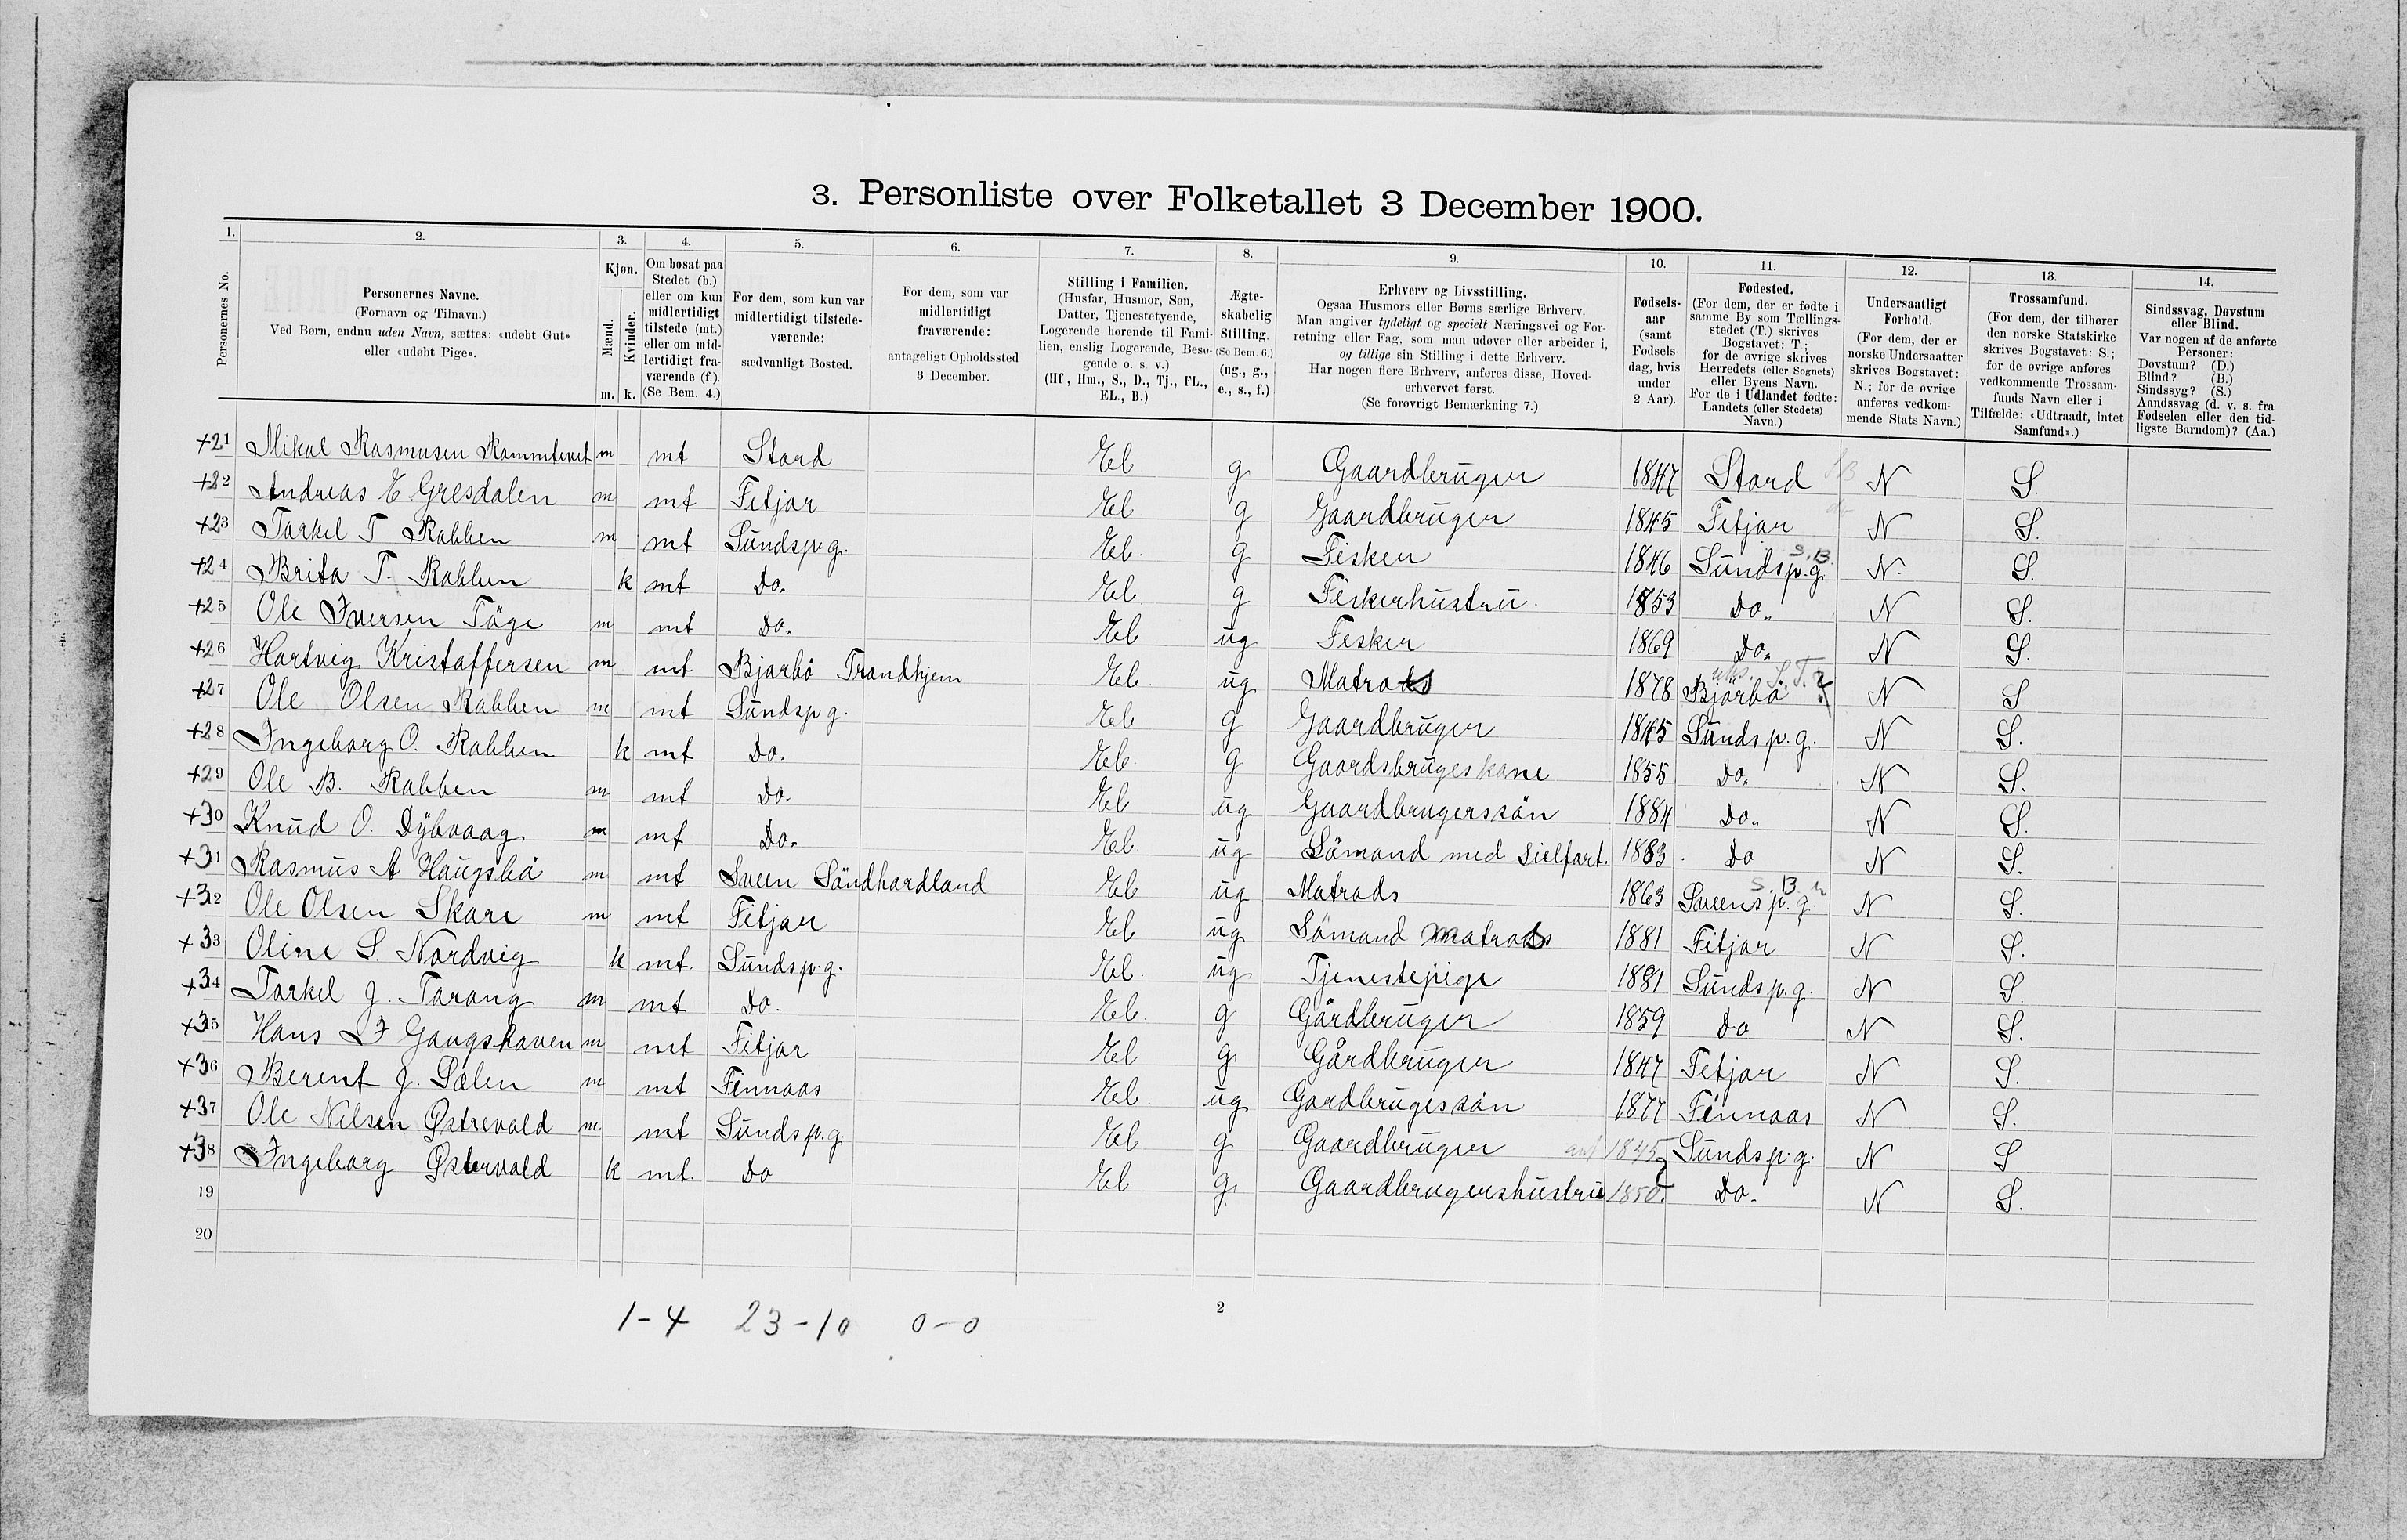 3. Personliste over Folketallet 3 December 1900.
1. 2. 3. 4. 5. 6. 7. 8. 9. 10. 11. 12. 13. 14.
Personernes No.
Personernes Navne.
(Fornavn og Tilnavn.)
Ved Børn, endnu uden Navn, sættes: «udøbt Gut»
eller «udøbt Pige».
Kjøn.
Mænd.
Kvinder.
m. k.
Om bosat paa
Stedet (b.)
eller om kun
midlertidigt
tilstede (mt.)
eller om mid-
lertidigt fra-
værende (f.).
(Se Bem. 4.)
For dem, som kun var
midlertidigt tilstede-
værende:
sædvanligt Bosted.
For dem, som var
midlertidigt
fraværende:
antageligt Opholdssted
3 December.
Stilling i Familien.
(Husfar, Husmor, Søn,
Datter, Tjenestetyende,
Logerende hørende til Fami-
lien, enslig Logerende, Besø-
gende o. s. v.)
(Hf., Hm., S., D., Tj., FL.,
EL., B.)
Ægte-
skabelig
Stilling.
(Se Bem. 6.)
(ug., g.,
e., s., f.)
Erhverv og Livsstilling.
Ogsaa Husmors eller Børns særlige Erhverv.
Man angiver tydeligt og specielt Næringsvei og For-
retning eller Fag, som man udøver eller arbeider i,
og tillige sin Stilling i dette Erhverv.
Har nogen flere Erhverv, anføres disse, Hoved-
erhvervet først.
(Se forøvrigt Bemærkning 7.)
Fødsels-
aar
(samt
Fødsels-
dag, hvis
under
2 Aar).
Fødested.
(For dem, der er fødte i
samme By som Tællings-
stedet (T.) skrives
Bogstavet: T;
for de øvrige skrives
Herredets (eller Sognets)
eller Byens Navn.
For de i Udlandet fødte:
Landets (eller Stedets)
Navn.)
Undersaatligt
Forhold.
(For dem, der er
norske Undersaatter
skrives Bogstavet:
N.; for de øvrige
anføres vedkom-
mende Stats Navn.)
Trossamfund.
(For dem, der tilhører
den norske Statskirke
skrives Bogstavet: S.;
for de øvrige anføres
vedkommende Trossam-
funds Navn eller i
Tilfælde: «Udtraadt, intet
Samfund».)
Sindssvag, Døvstum
eller Blind.
Var nogen af de anførte
Personer:
Døvstum? (D.)
Blind? (B.)
Sindssyg? (S.)
Aandssvag (d. v. s. fra
Fødselen eller den tid-
ligste Barndom)? (Aa.)
+21 Mikal Rasmusen m mt Stord El g Gaardbruger 1847 Stord N S.
+22 Andreas E Gresdalen m mt Fitjar El g Gaardbruger 1845 Fitjar N S.
+23 Torkel T Rabben m mt Sundsp.g. El. g Fisker 1846 Sundsp.g. S. B. N. S.
+24 Brita T. Rabben k mt Do. El g Fiskerhustru. 1853 Do. N S.
+25 Ole Iversen Töge m mt Do. El ug Fisker 1869 Do. N S.
+26 Hartvig Kristoffersen m mt Bjarbö Trondhjem El. ug Matrods 1878 Bjarbö S. T. N S.
+27 Ole Olsen Rabben m mt Sundsp g. El g Gaardbruger 1845 Sunds p. g. N S.
+28 Ingeborg O. Rabben k mt Do. El. g Gaardsbrugeskone 1855 Do. N S.
+29 Ole B. Rabben m mt Do. El ug Gaardbrugerssön 1884 Do. N S.
+30 Knud O. Dybvaag m mt Do. El. ug Sömand med Sielfart. 1883. Do N S.
+31 Rasmus A Haugsbö m mt Sveen Söndhordland El ug Matrods 1863 Sveens p. g. S. B. N S.
+32 Ole Olsen Skare m mt Fitjar El ug Sömand matrods 1881 Fitjar N S.
+33 Oline S. Nordvig k mt. Sundsp.g. El. ug Tjenestepige 1881 Sunds p. g. N S
+34 Torkel J. Tarang m mt Do. El. g Gårdbruger 1859 Do N S.
+35 Hans F Gaugshaven m mt Fitjar El g Gårdbruger 1847 Fitjar N S.
+36 Berent J. Sælen m mt Finnaas El. ug Gardbrugessön 1877 Finnaas N S.
+37 Ole Nilsen Østrevold m mt Sundsp.g. El g Gaardbruger ant 1845 Sundsp.g. N S
+38 Ingeborg Østervold k mt. Do El g. Gaardbrugershustru 1850 Do. N S.
19
20
1-4 23-10 0-0
2